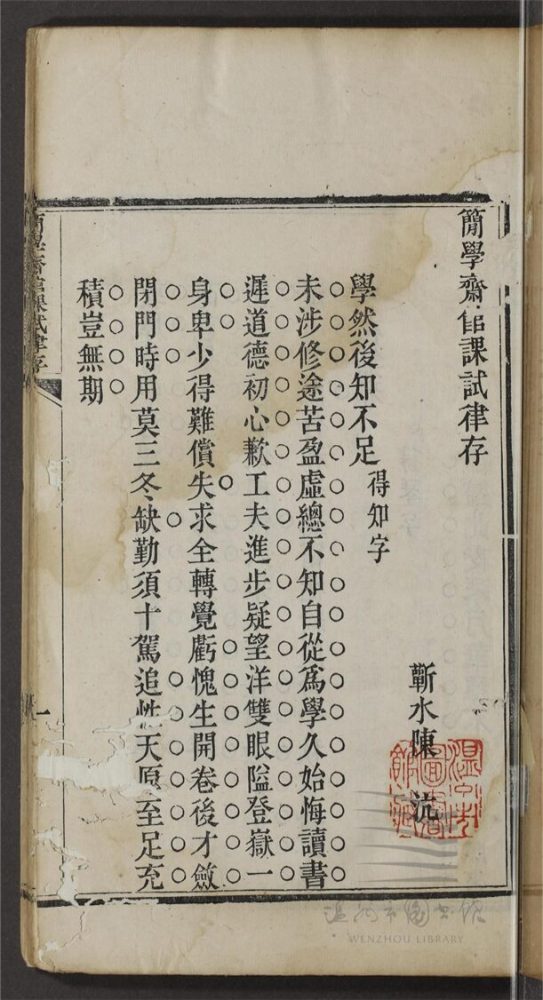 簡學齋館課試律存
蘄水陳沆
學然後知不足 得知字
未涉修途苦盈虛總不知自從爲學久始悔讀書
遲道德初心歉工夫進步疑望洋雙眼隘登嶽一
身卑少得難償失求全轉覺虧愧生開卷後才斂
閉門時用莫三冬缺勤須十駕追性天原至足充
積豈無期
簡學齋館課試律存
一
溫州市圖書館
WENZHOU LIBRARY